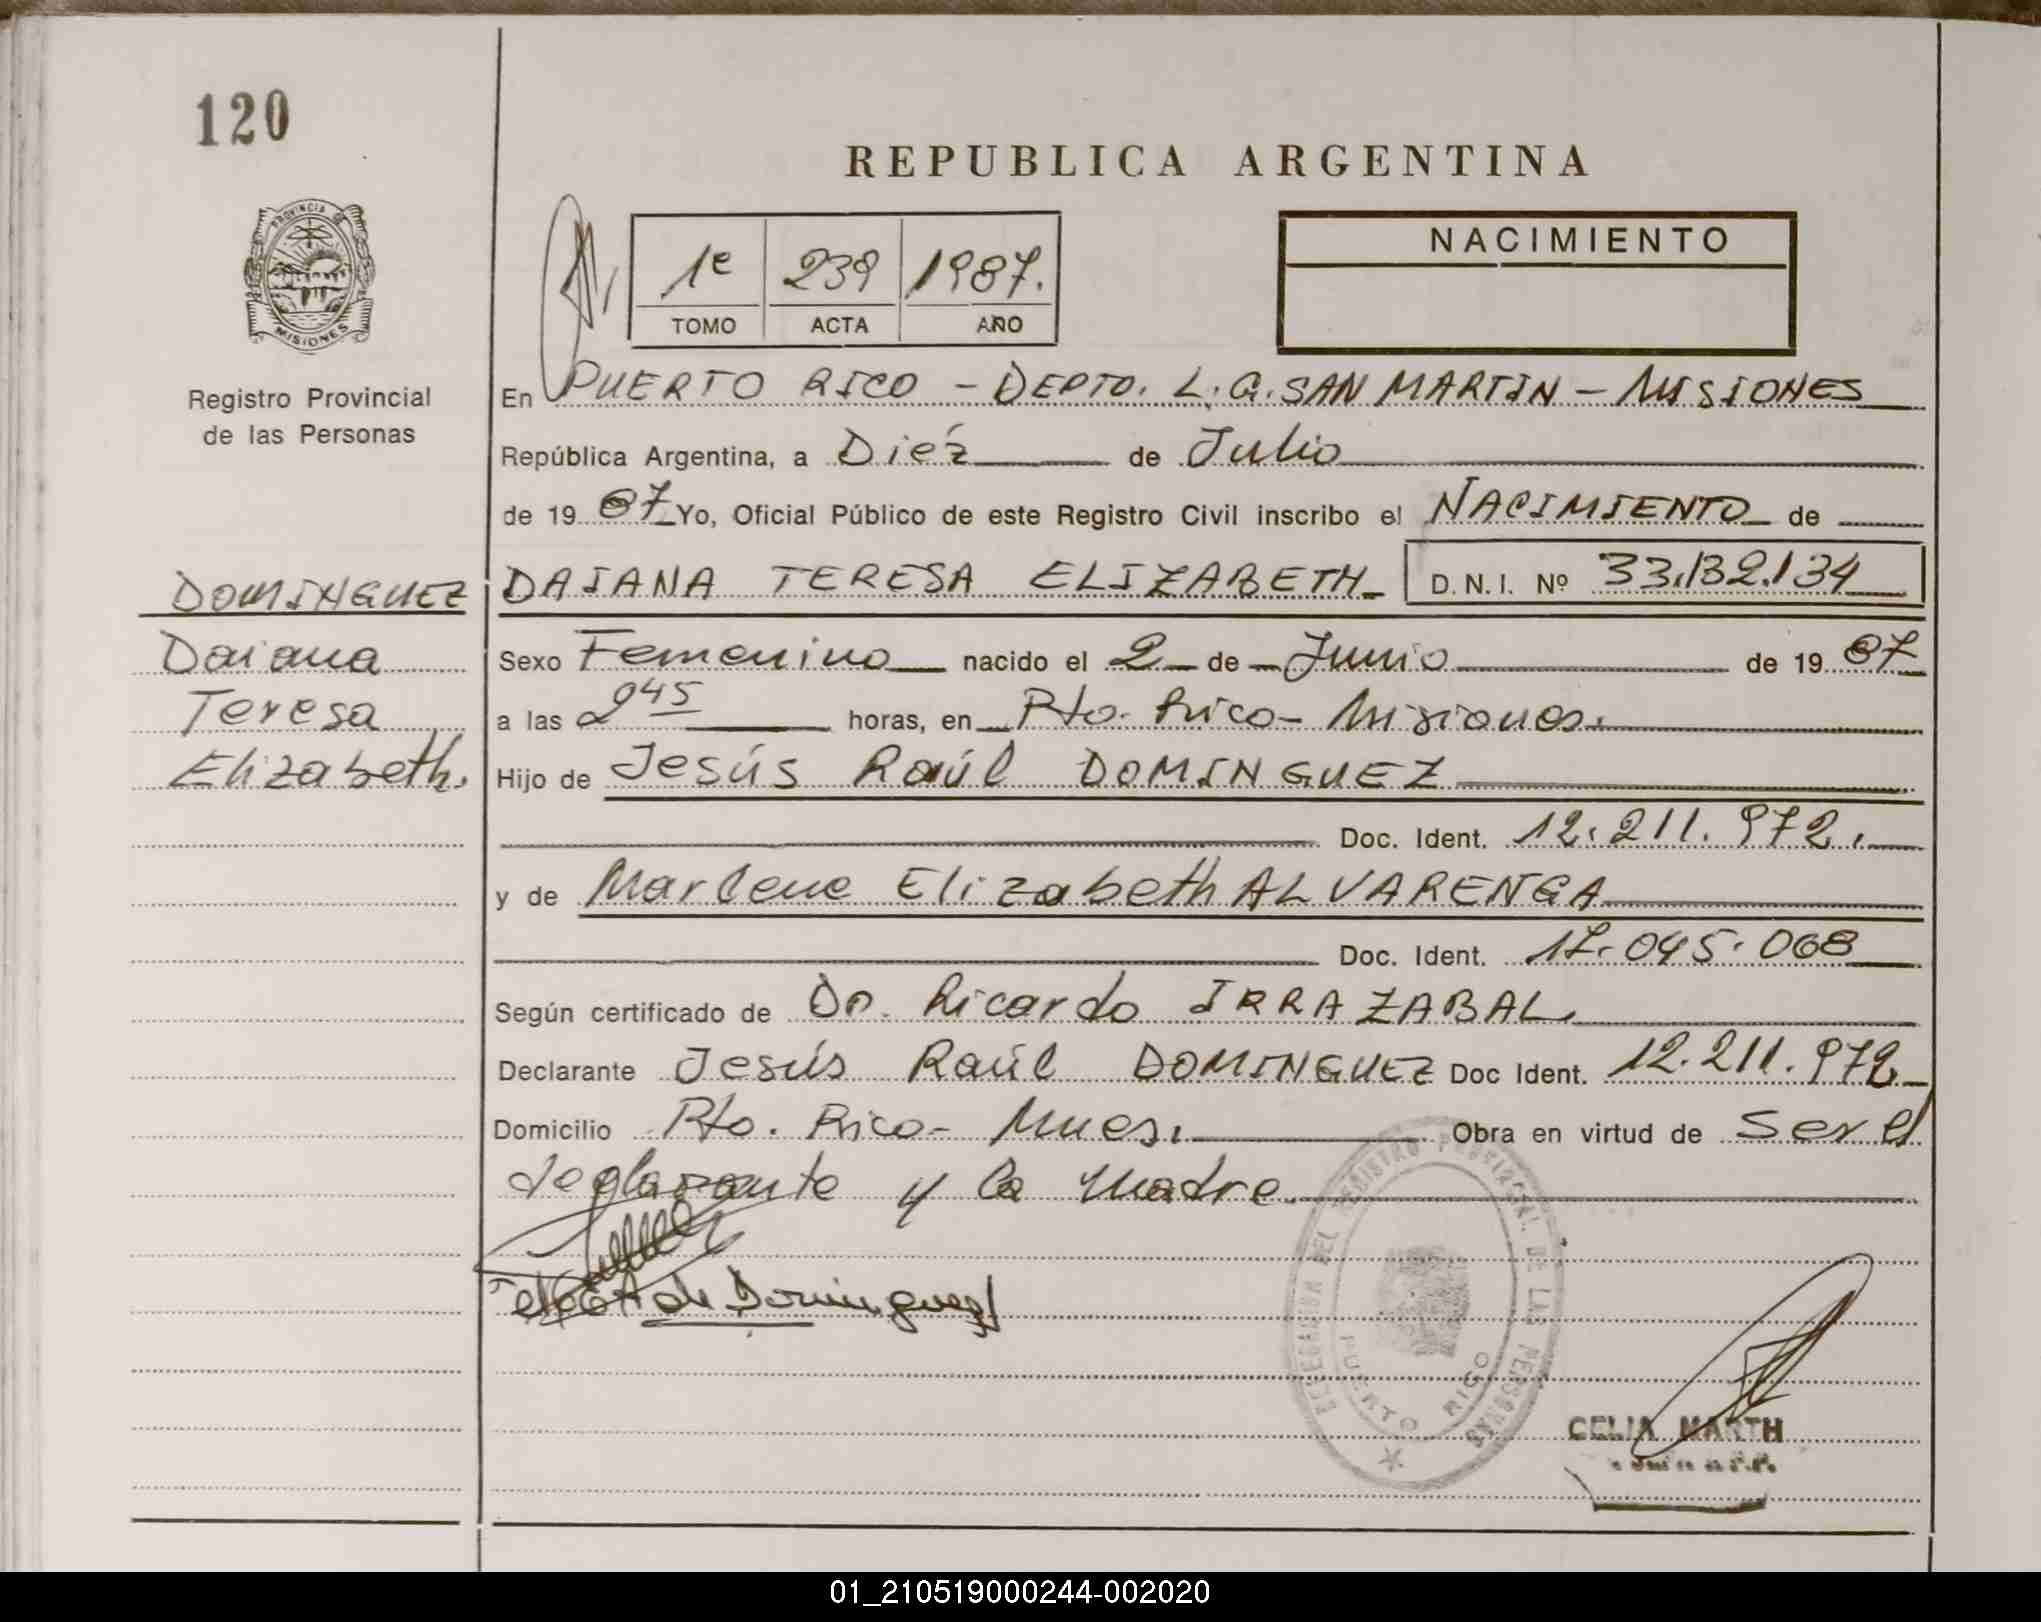 120
REPUBLICA ARGENTINA
PROVINCIA DE
MISIONES
Registro Provincial
de las Personas
1e 239 1987.
TOMO ACTA AÑO
NACIMIENTO
En PUERTO RICO - DEPTO. L. G. SAN MARTIN - MISIONES
República Argentina, a Diéz de Julio
de 19 87 Yo, Oficial Público de este Registro Civil inscribo el NACIMIENTO de
DOMINGUEZ DAIANA TERESA ELIZABETH D.N.I. Nº 33.132.134
Daiana Sexo Femenino nacido el 2 de Junio de 19 87
Teresa a las 2 45 horas, en Pto. Rico - Misiones.
Elizabeth. Hijo de Jesús Raúl DOMINGUEZ
Doc. Ident. 12.211.972.
y de Marlene Elizabeth ALVARENGA
Doc. Ident. 17.045.068
Según certificado de Dr. Ricardo IRRAZABAL.
Declarante Jesús Raúl DOMINGUEZ Doc Ident. 12.211.972
Domicilio Pto. Rico - Mnes. Obra en virtud de Ser el
deglarante y la madre.
de Dominguez
DELEGACION DEL REGISTRO PROVINCIAL DE LAS PERSONAS
PUERTO RICO
CELIA MARTH
01_210519000244-002020